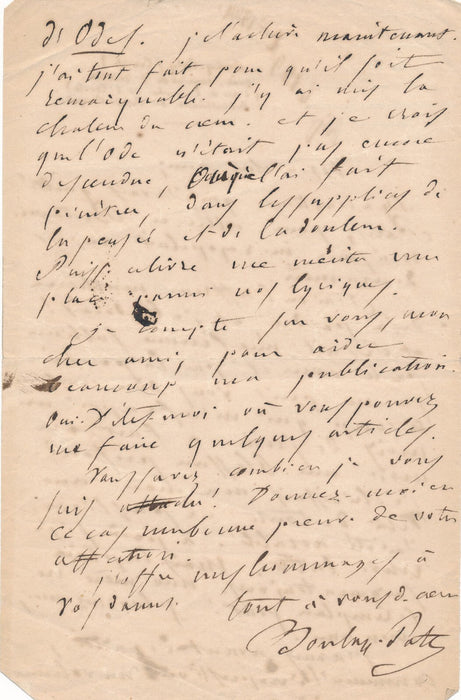 d'Odes. je l'achève maintenant.
j'ai tout fait pour qu'il soit
remarquable. j'y ai mis la
chaleur du cœur. et je crois
que l'Ode n'était pas encore
descendue, l'ai fait
pénétrer, dans les supplices de
la pensée et de la douleur.
Puisse ce livre me mériter une
place parmi nos lyriques.
je compte sur vous, mon
cher ami, pour aider
beaucoup ma publication.
oui. Dites-moi où vous pouvez
me faire quelques articles.
Vous savez combien je vous
suis attaché! Donnez-moi en
ce cas une bonne preuve de votre
affection.
j'offre mes hommages à
vos dames. tout à vous de cœur
Boulay-Paty